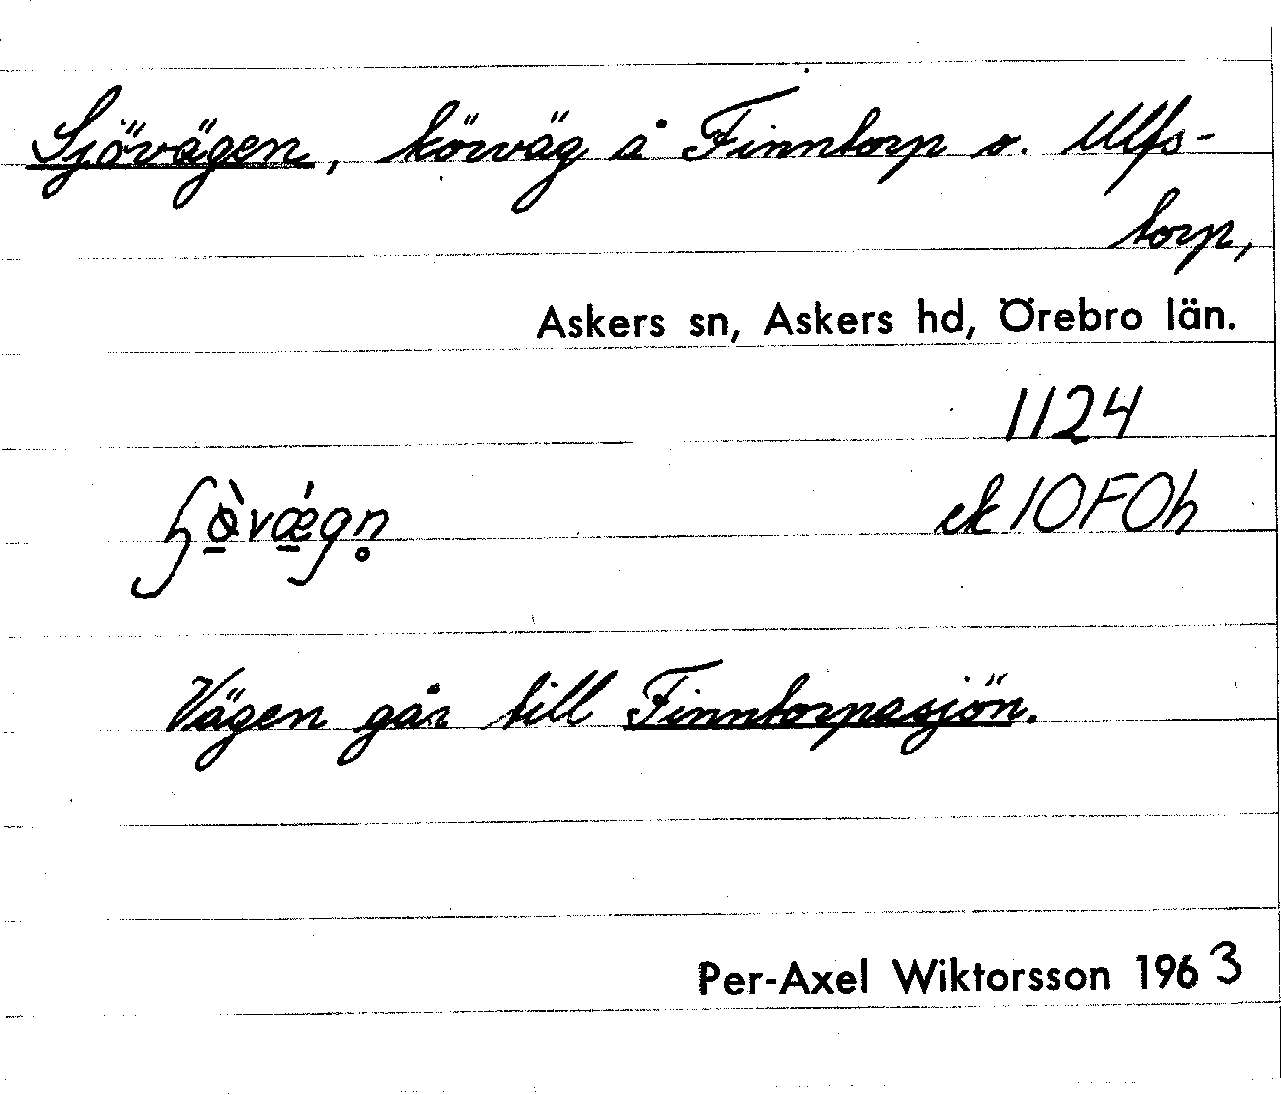 Sjövägen, körväg å Finntorp o. Ulfs-
torp,
Askers sn, Askers hd, Örebro län.
1124
ek 10F0h
Vägen går till Finntorpasjön.
Per-Axel Wiktorsson 1963